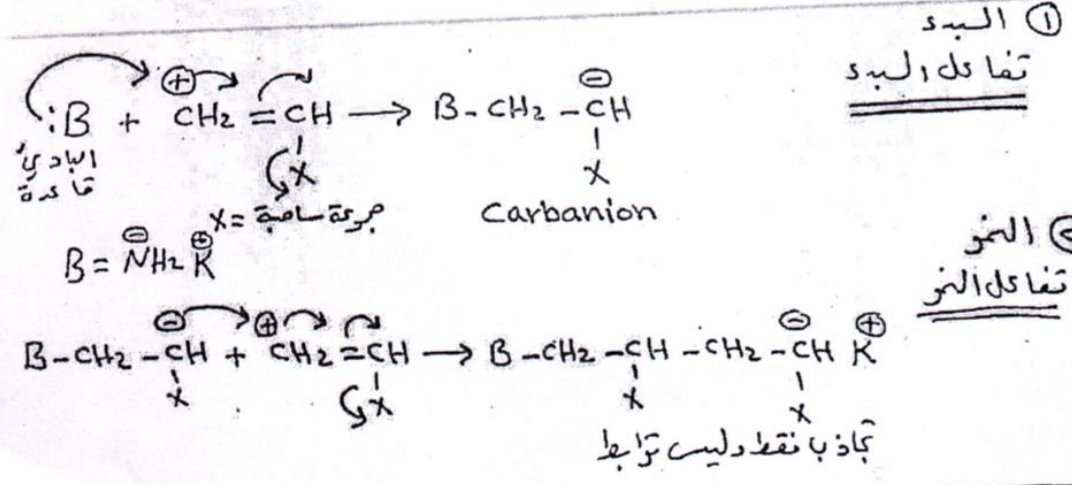 ① البدء
تفاعل البدء
:B + ⊕CH₂ = CH → B - CH₂ - ⊖CH
X X
البادئ
قاعدة
X = مجموعة ساحبة
Carbanion
B = ⊖NH₂ ⊕K
② النمو
تفاعل النمو
B - CH₂ - ⊖CH + ⊕CH₂ = CH → B - CH₂ - CH - CH₂ - ⊖CH ⊕K
X X X X
تجاذب فقط وليس ترابط